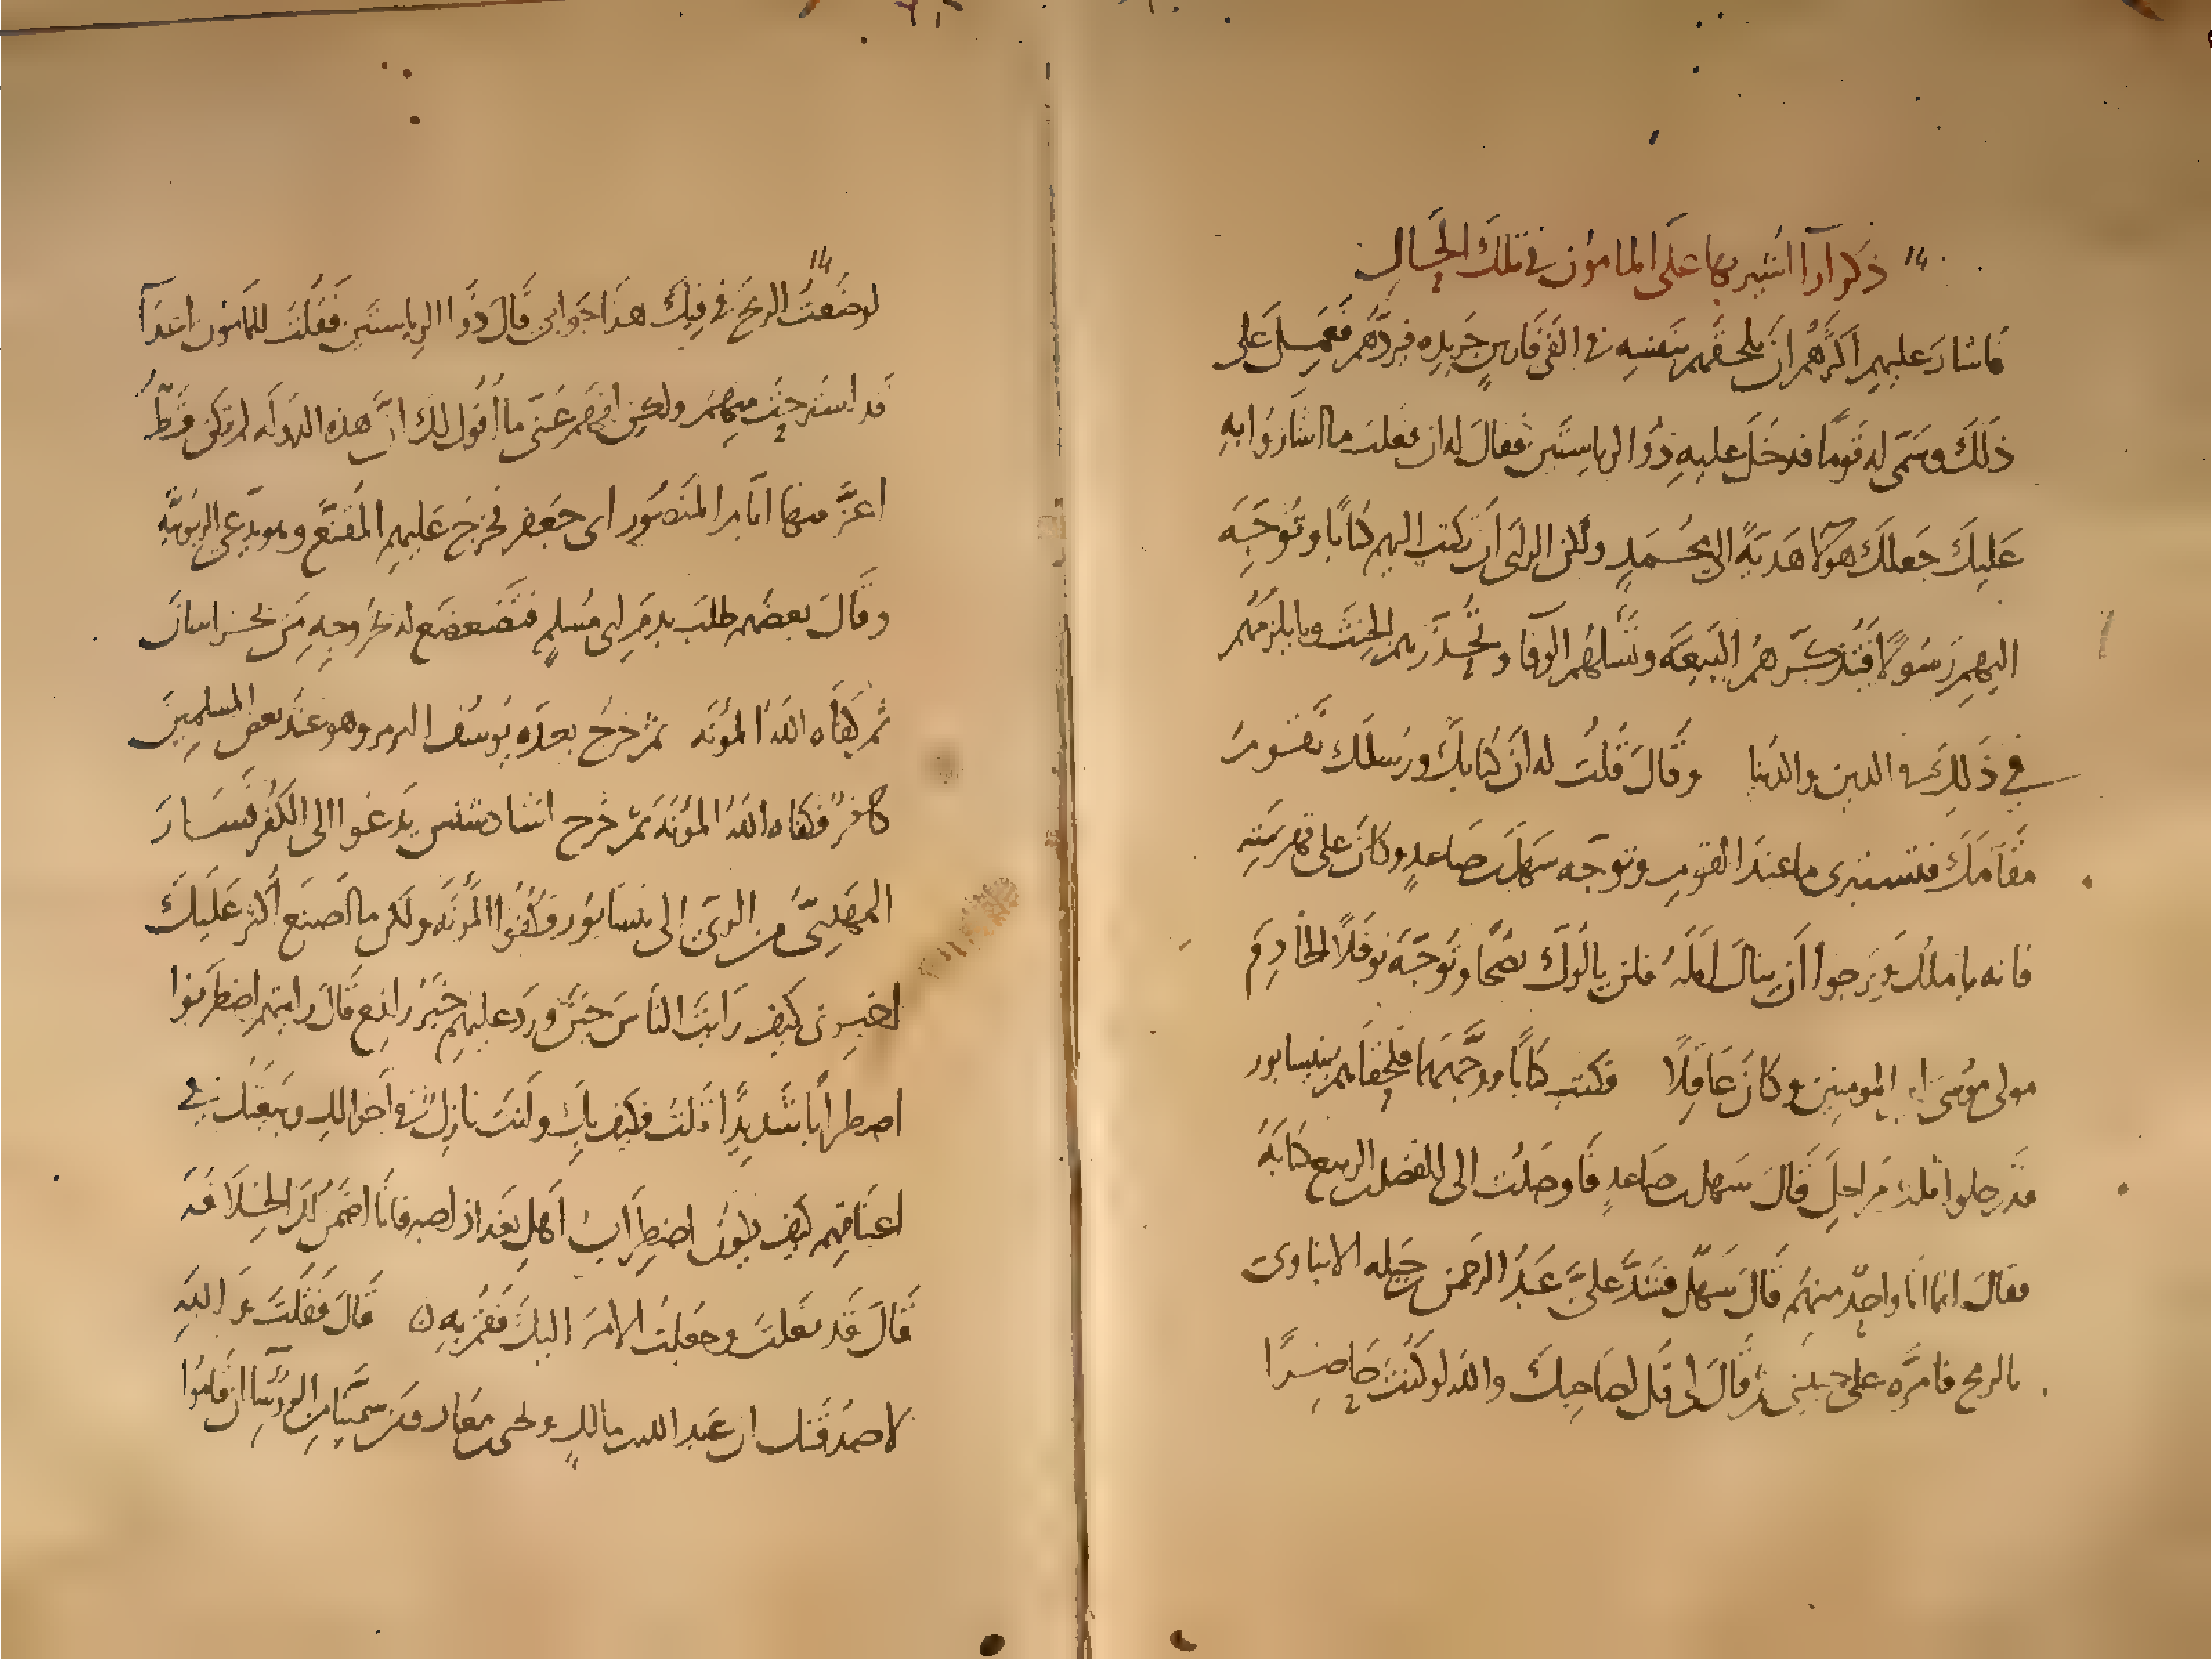 ذكر آراء اشير بها على المامون في تلك الحال
فاشار عليهم اكثرهم ان يلحقهم بنفسه في الفي فارس جريده فيردهم فعمل على
ذلك وسمى له قوما فدخل عليه ذو الرياستين فقال له ان فعلت ما اشاروا به
عليك جعلك هولا هدية الى محمد ولكن الراى ان تكتب اليهم كتابا وتوجه
اليهم رسولا فتذكرهم البيعه وتسلهم الوفا وتحذرهم الحنث وما يلزمهم
في ذلك في الدين والدنيا وقال قلت له ان كتابك ورسلك تقوم
مقامك فتستبرى ما عند القوم وتوجه سهل بن صاعد وكان على قهرمته
فانه ياملك ويرجوا ان ينال امله فلن يالوك نصحا وتوجه نوفلا الخادم
مولى موسى امير المومنين وكان عاقلا فكتب كتابا ووجههما فلحقاهم بنيسابور
قد رحلوا ثلث مراحل قال سهل بن صاعد فاوصلت الى الفضل بن الربيع كتابه
فقال انما انا واحد منهم قال سهل فشد علي عبد الرحمن بن جبله الابناوى
بالرمح فامره على جنبى ثم قال لى قل لصاحبك والله لو كنت حاضرا
لوضعت الرمح في فيك هذا جوابى قال ذوا الرياستين فقلت للمامون اعدآ
قد استرحت منهم ولكن افهم عنى ما اقول لك ان هذه الدوله لم تكن قط
اعز منها ايام المنصور ابى جعفر فخرج عليهم المقنع وهو يدعى الربوبيه
وقال بعضهم طلب بدم ابى مسلم فتضعضع له بخروجه من بخراسان
ثم كفاه الله المؤنه ثم خرج بعده يوسف البرم وهو عند بعض المسلمين
كافر فكفاه الله المؤنه ثم خرج استادسيس يدعوا الى الكفر فسار
المهدى من الري الى نيسابور فكفوا المؤنه ولكن ما اصنع اكثر عليك
اخبرونى كيف رايت الناس حين ورد عليهم خبر رافع قال رايتهم اضطربوا
اضطرابا شديدا قلت فكيف بك وانت نازل في اخوالك وبيعتك في
اعناقهم كيف يكون اضطراب اهل بغداذ اصبر فانا اضمن لك الخلافه
قال قد فعلت وجعلت الامر اليك فقم به ه قال فقلت والله
لاصدقنك ان عبد الله بن مالك ويحى بن معاذ ومن سمينا من الروسا ان قاموا